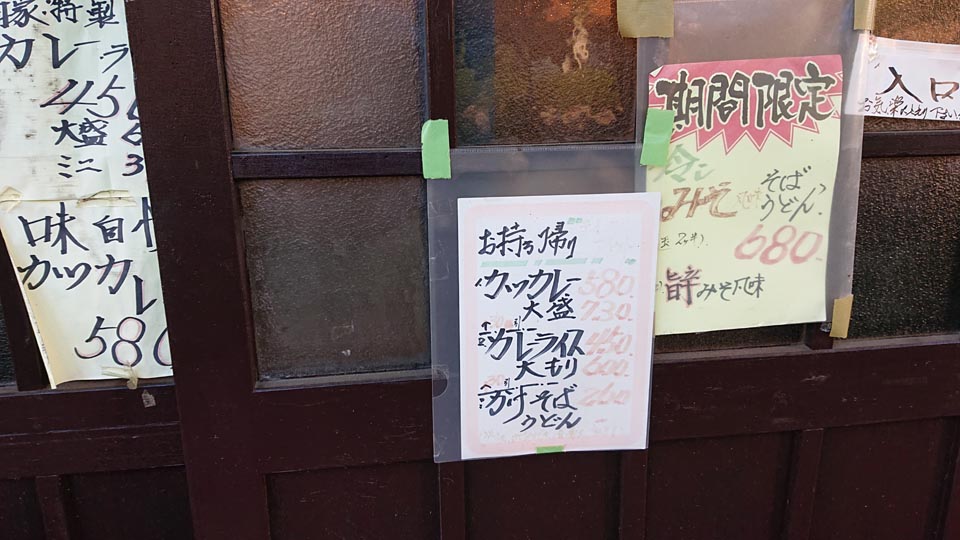 家特製
カレーラ
450
大盛 6
ミニ 3
味自慢
カツカレ
580
お持ち帰り
カツカレー 580
大盛 730.
カレーライス 450
大もり 600.
かけそば 260
うどん
期間限定
冷し
みそ
そば
うどん
680.
旨辛みそ風味
入口